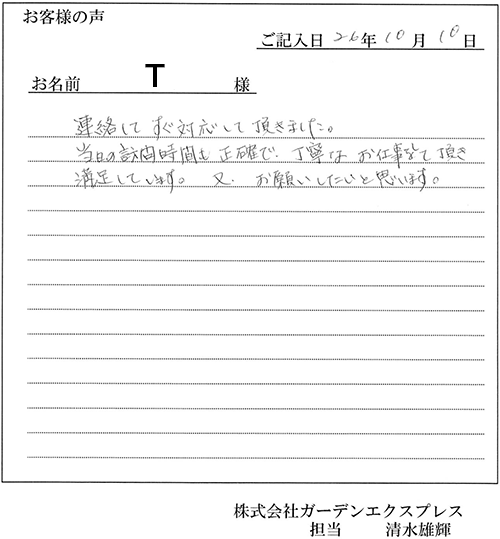 お客様の声
ご記入日 26年 10月 10日
お名前 T 様
連絡して すぐ対応して頂きました。
当日の訪問時間も正確で、丁寧なお仕事をして頂き
満足しています。 又、お願いしたいと思います。
株式会社ガーデンエクスプレス
担当 清水雄輝